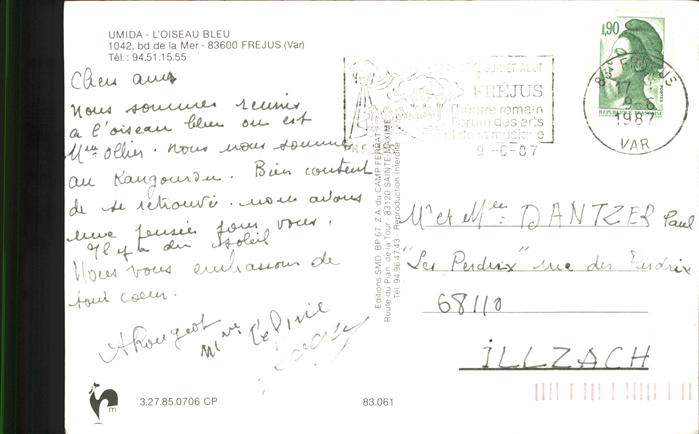 UMIDA - L'OISEAU BLEU
1042, bd de la Mer - 83600 FREJUS (Var)
Tél.: 94.51.15.55
Chers amis
Nous sommes reunis
a l'oiseau bleu ou est
Mme Ollier. Nous nous sommes
au Kangourou. Bien content
de se retrouvé. nous avons
une pensée pour vous.
Il y a du soleil
Nous vous embrassons de
tout coeur.
Mme
3.27.85.0706 CP
83.061
Editions SMD. BP 67. Z.A. du CAMP FERRAT
Route du Plan de la Tour - 83120 SAINTE-MAXIME
Tél. 94.96.47.43 - Reproduction interdite
JUILLET AOUT
FRÉJUS
Théatre romain
Forum des arts
et de la musique
9-6-87
1,90
83 FREJUS
17
9-6
1987
VAR
Mr et Mme: DANTZER Paul
"Les Perdrix" rue des Perdrix
68110
ILLZACH